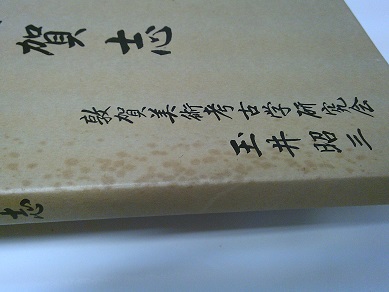 賀志
敦賀美術考古学研究会
玉井昭三
志